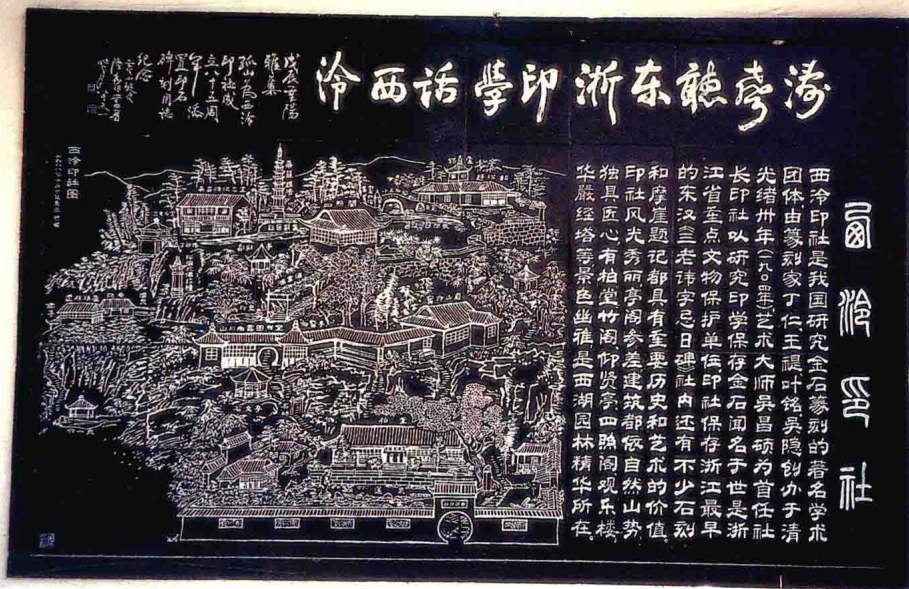 涛聲聽东浙印学话西泠
西泠印社
西泠印社是我国研究金石篆刻的著名学术
团体由篆刻家丁仁王禔叶铭吴隐创办于清
光绪卅年(一九〇四年)艺术大师吴昌硕为首任社
长印社以研究印学保存金石闻名于世是浙
江省重点文物保护单位印社保存浙江最早
的东汉三老讳字忌日碑社内还有不少石刻
和摩崖题记都具有重要历史和艺术的价值
印社风光秀丽亭阁参差建筑都依自然山势
独具匠心有柏堂竹阁仰贤亭四照阁观乐楼
华严经塔等景色幽雅是西湖园林精华所在
戊辰重阳
雅集
孤山为西泠
印社成
立八十五周
纪念
西泠印社图
山川雨露图书室
柏堂